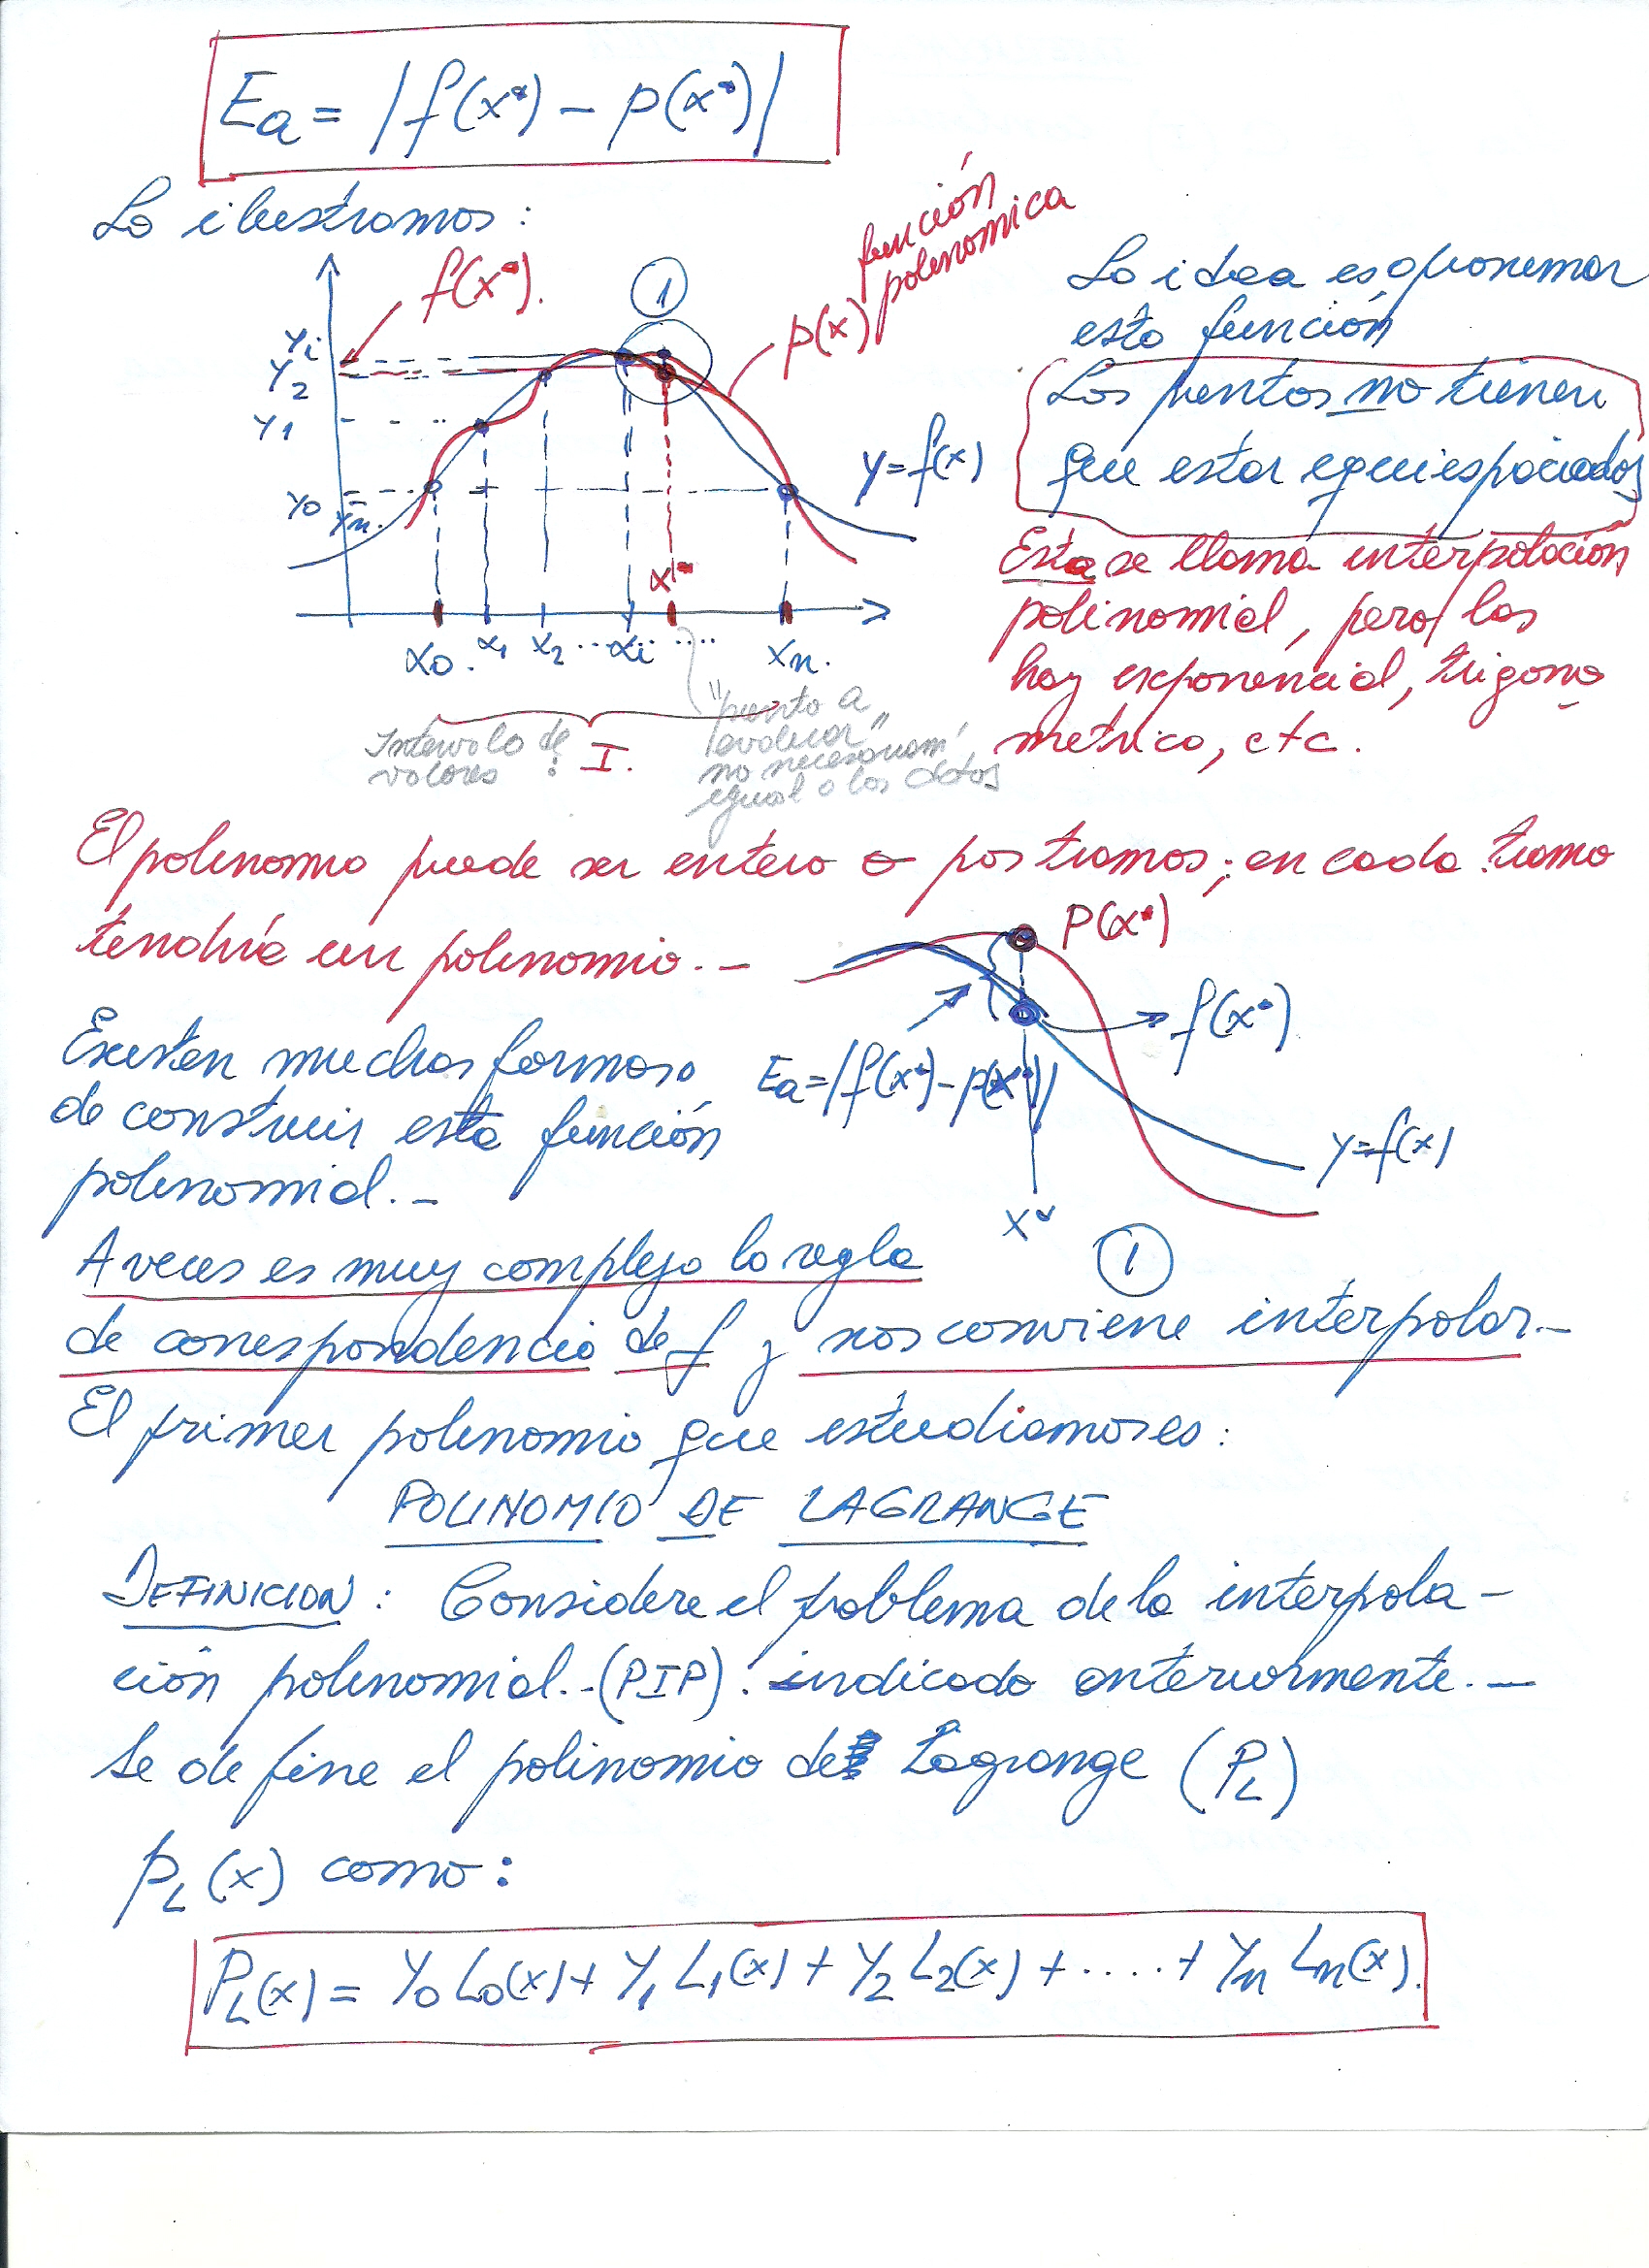 Ea = |f(x*) - p(x*)|
Lo ilustramos:
f(x*).
1
función
polinomica
p(x)
yi
y2
y1
y0
yn.
y=f(x)
x*
x0. x1 x2 ... xi .... xn.
Intervalo de
valores : I.
"punto a
evaluar"
no necesariam
igual a los datos
La idea es
esta función
Los puntos no tienen
que estar equiespaciados
Esta se llama interpolación
polinomial, pero las
hay exponencial, trigono
metrico, etc.
El polinomio puede ser entero o pos tramos; en cada tramo
tendría un polinomio.-
P(x*)
f(x*)
Ea=|f(x*)-p(x*)|
y=f(x)
x*
1
Existen muchas formas
de construir esta función
polinomial.-
A veces es muy complejo la regla
de correspondencia de f y nos conviene interpolar.-
El primer polinomio que estudiamos es:
POLINOMIO DE LAGRANGE
DEFINICION: Considere el problema de la interpola-
ción polinomial.-(PIP). indicado anteriormente.-
Se define el polinomio de Lagrange (PL)
pL(x) como:
PL(x) = y0 L0(x) + y1 L1(x) + y2 L2(x) + .... + yn Ln(x).